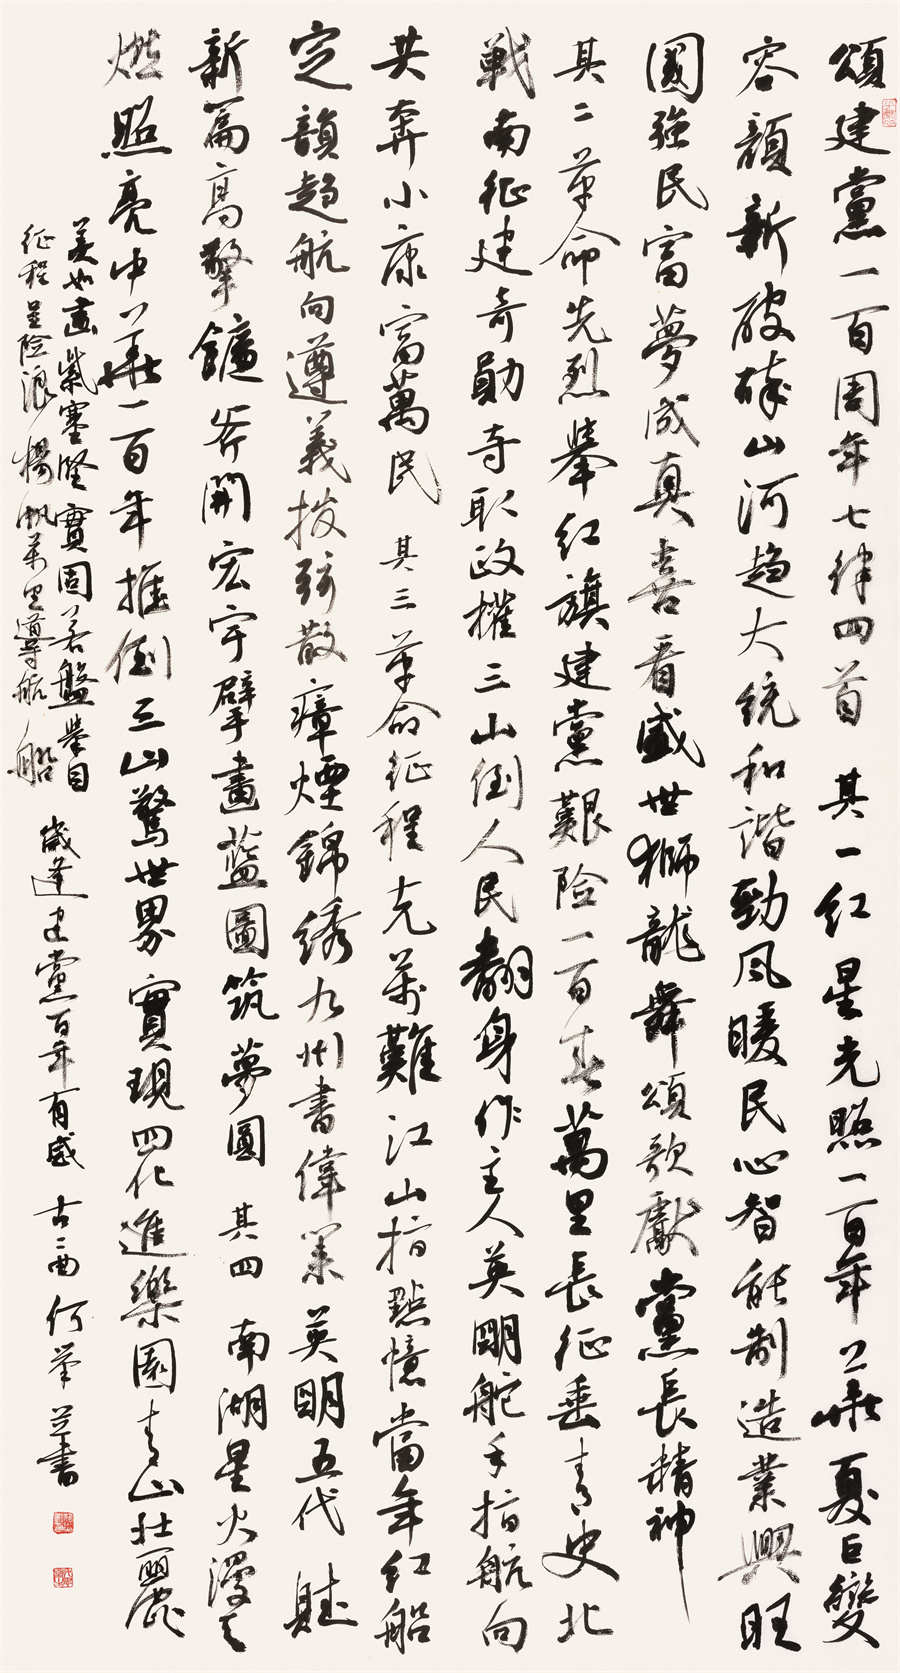 頌建黨一百周年七律四首 其一紅星光照一百年華夏巨變
容顏新破碎山河趨大統和諧勁風暖民心智能制造業興旺
國強民富夢成真喜看盛世獅龍舞頌歌獻黨長精神
其二革命先烈舉紅旗建黨艱險一百春萬里長征垂青史北
戰南征建奇勛奪取政權三山倒人民翻身作主人英明舵手指航向
共奔小康富萬民 其三革命征程克萬難江山指點憶當年紅船
定韻趨航向遵義撥弦散瘴煙錦绣九州書偉業英明五代
新篇高擎鐮斧開宏宇擘畫藍圖筑夢圓 其四 南湖星火漫天
燃照亮中華一百年推倒三山驚世界實現四化進樂園青山壯麗
美如畫紫塞堅實固若盤舉目
征程呈險浪揚帆萬里導航船 歲逢建黨百年有感 古二酉 何 書